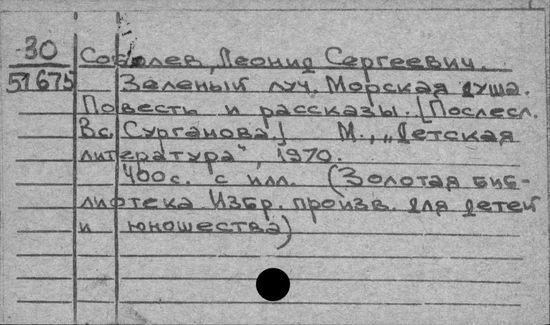 30 Соболев, Леонид Сергеевич.
51675 Зеленый луч. Морская душа.
Повесть и рассказы. [Послесл.
Вс. Сурганова] М., „Детская
литература", 1970.
400 с. с илл. (Золотая биб-
лиотека Избр. произв. для детей
и юношества)